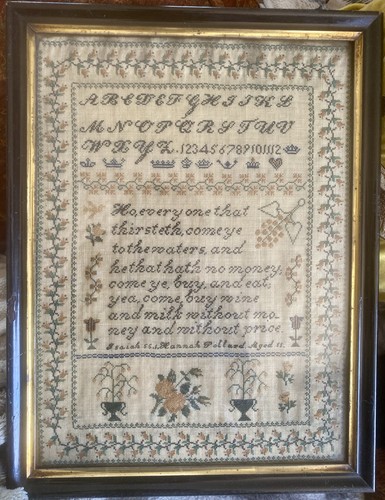 A B C D E F G H I J K L
M N O P Q R S T U V
W X Y Z. 1 2 3 4 5 6 7 8 9 10 11 12
Ho, every one that
thirsteth, come ye
to the waters, and
he that hath no money,
come ye, buy, and eat;
yea, come, buy wine
and milk without mo
ney and without price.
Isaiah 55.1. Hannah Pollard Aged 11.